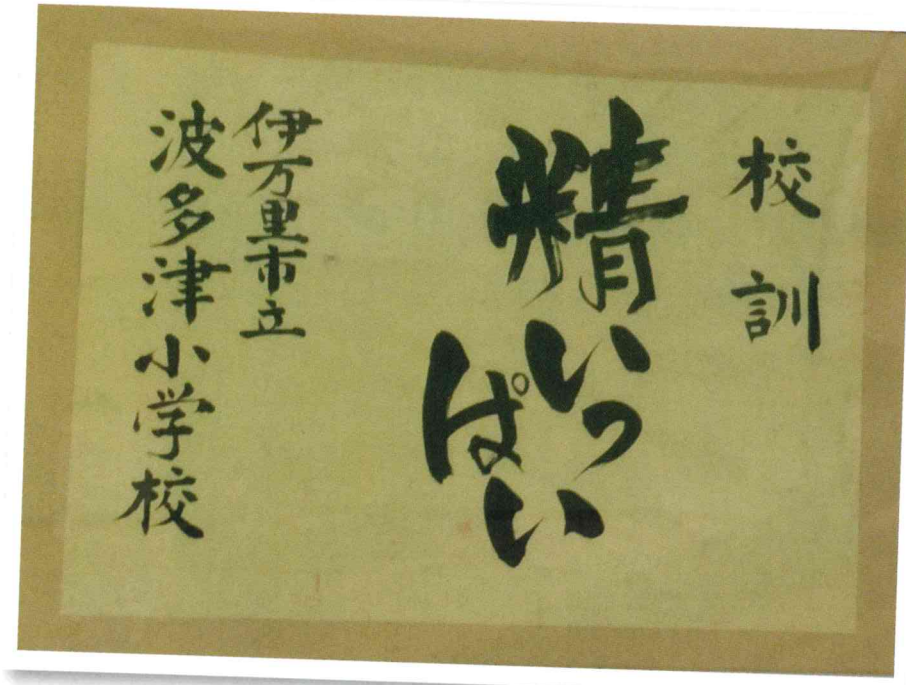 校訓
精いっぱい
伊万里市立
波多津小学校